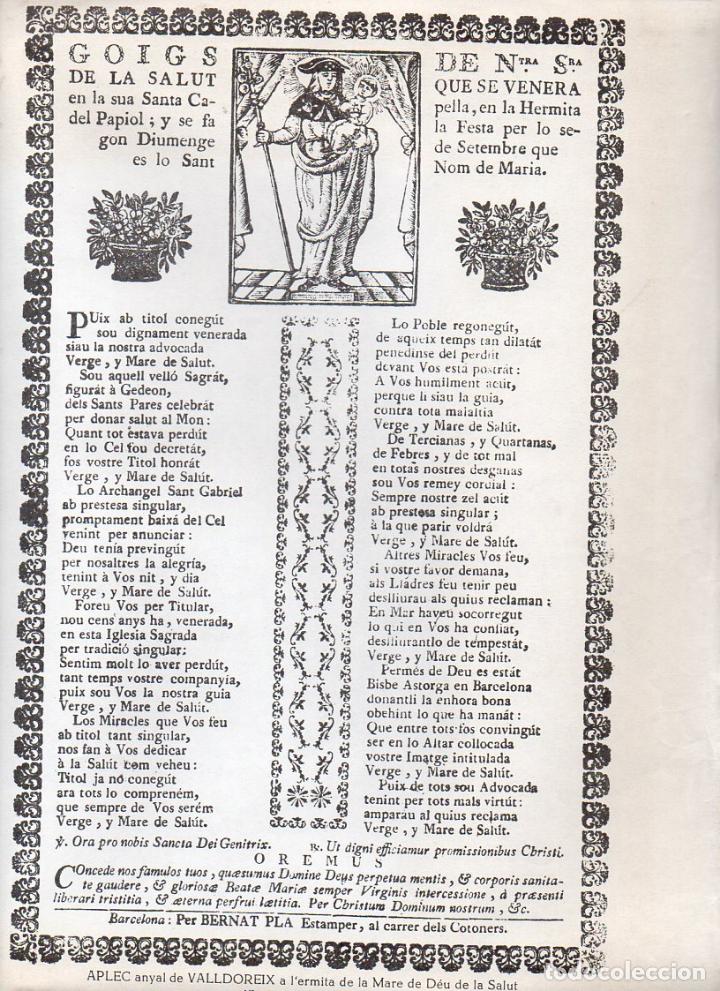 GOIGS
DE LA SALUT
en la sua Santa Ca-
del Papiol ; y se fa
gon Diumenge
es lo Sant
DE N.TRA S.RA
QUE SE VENERA
pella, en la Hermita
la Festa per lo se-
de Setembre que
Nom de Maria.
PUix ab titol conegút
sou dignament venerada
siau la nostra advocada
Verge, y Mare de Salut.
Sou aquell velló Sagrát,
figurát à Gedeon,
dels Sants Pares celebrát
per donar salut al Mon:
Quant tot éstava perdút
en lo Cel fou decretát,
fos vostre Titol honrát
Verge, y Mare de Salút.
Lo Archangel Sant Gabriel
ab prestesa singular,
promptament baixá del Cel
venint per anunciar:
Deu tenía previngút
per nosaltres la alegría,
tenint à Vos nit, y dia
Verge, y Mare de Salút.
Foreu Vos per Titular,
nou cens anys ha, venerada,
en esta Iglesia Sagrada
per tradició singular:
Sentim molt lo aver perdút,
tant temps vostre companyía,
puix sou Vos la nostra guia
Verge, y Mare de Salút.
Los Miracles que Vos feu
ab titol tant singular,
nos fan à Vos dedicar
à la Salút com veheu:
Titol ja nó conegút
ara tots lo compreném,
que sempre de Vos serém
Verge, y Mare de Salút.
Lo Poble regonegút,
de aqueix temps tan dilatát
penedinse del perdút
devant Vos está postrát:
A Vos humilment acút,
perque li siau la guia,
contra tota malaltia
Verge, y Mare de Salút.
De Tercianas, y Quartanas,
de Febres, y de tot mal
en totas nostres desganas
sou Vos remey cordial:
Sempre nostre zel acút
ab prestesa singular;
à la que parir voldrá
Verge, y Mare de Salút.
Altres Miracles Vos feu,
si vostre favor demana,
als Lládres feu tenir peu
desllíurau als quius reclaman:
En Mar haveu socorregut
lo qui en Vos ha confiat,
desllíurantlo de tempestát,
Verge, y Mare de Salút.
Permés de Deu es estát
Bisbe Astorga en Barcelona
donantli la enhora bona
obehint lo que ha manát:
Que entre tots fos convingút
ser en lo Altar collocada
vostre Imatge intitulada
Verge, y Mare de Salút.
Puix de tots sou Advocada
tenint per tots mals virtút:
amparau al quius reclama
Verge, y Mare de Salút.
℣. Ora pro nobis Sancta Dei Genitrix. ℟. Ut digni efficiamur promissionibus Christi.
OREMUS
COncede nos famulos tuos, quæsumus Domine Deus perpetua mentis, & corporis sanita-
te gaudere, & gloriosæ Beatæ Mariæ semper Virginis intercessione, à præsenti
liberari tristitia, & æterna perfrui lætitia. Per Christum Dominum nostrum, &c.
Barcelona: Per BERNAT PLA Estamper, al carrer dels Cotoners.
APLEC anyal de VALLDOREIX a l'ermita de la Mare de Déu de la Salut
todocoleccion